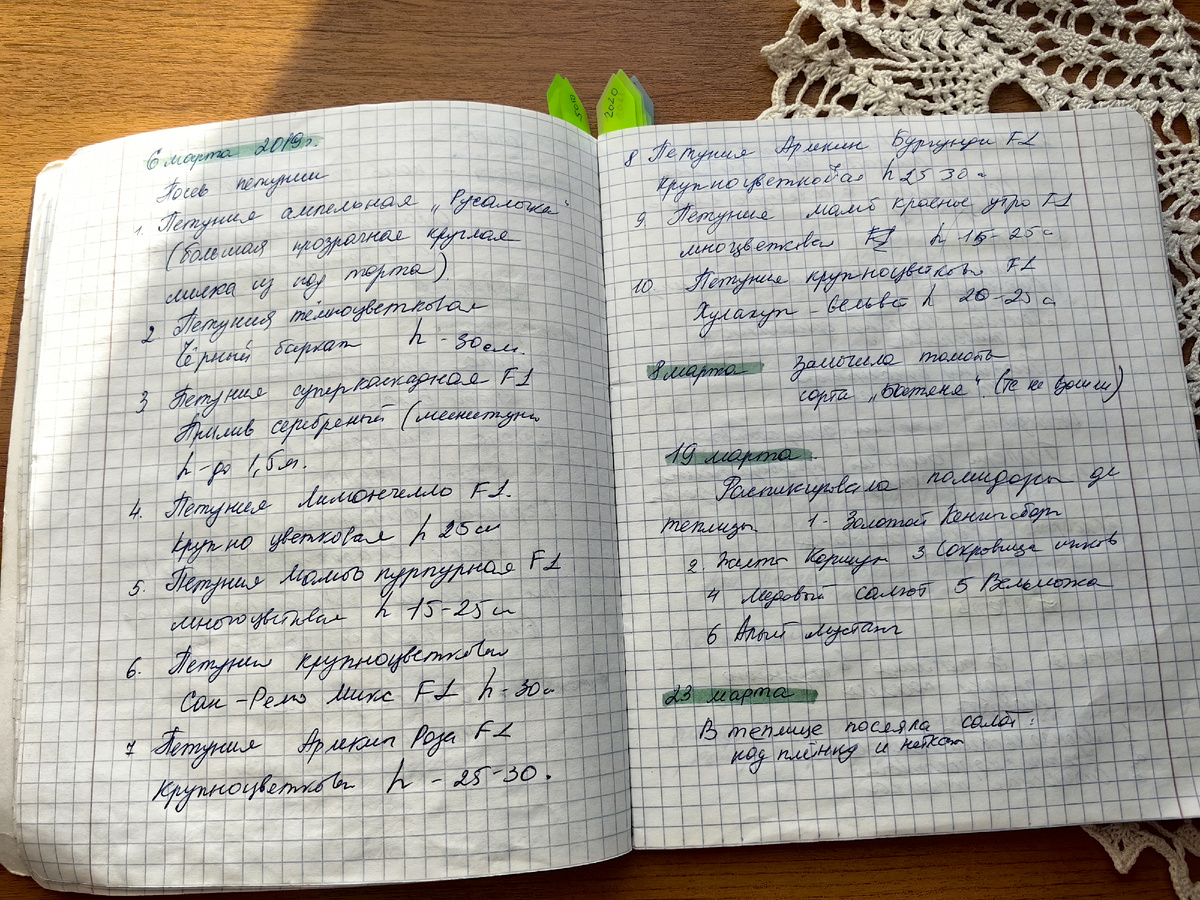 2019
2020
6 марта 2019г.
Посев петунии
1. Петуния ампельная „Русалочка"
(большая прозрачная круглая
миска из под торта)
2 Петуния темноцветковая
Чёрный бархат h - 30 см.
3 Петуния суперкаскадная F1
Прилив серебреный (минитуния
h - до 1,5 м.
4. Петуния Лимончелло F1.
крупно цветковая h 25 см
5. Петуния Мамбо пурпурная F1
многоцветковая h 15-25 см
6. Петуния крупноцветковая
Сан-Ремо Микс F1 h - 30 см
7 Петуния Арлекин Роза F1
крупноцветковая h - 25-30.
8 Петуния Арлекин Бургунди F1
крупноцветковая h 25 30 см
9. Петуния мамб красное утро F1
многцветковая F1 h 15-25 см
10. Петуния крупноцветковая F1
Хулахуп - вельвет h 20-25 см
8 марта Замочила томаты
сорта „Батяня". (те не взошли)
19 марта.
Распикировала помидоры до
теплицы 1 - Золотой Кенигсберг
2. Коршун 3 Сокровища инков
4 Медовый салют 5 Вельможа
6 Алый мустанг
23 марта
В теплице посеяла салат:
под плёнку и неткан